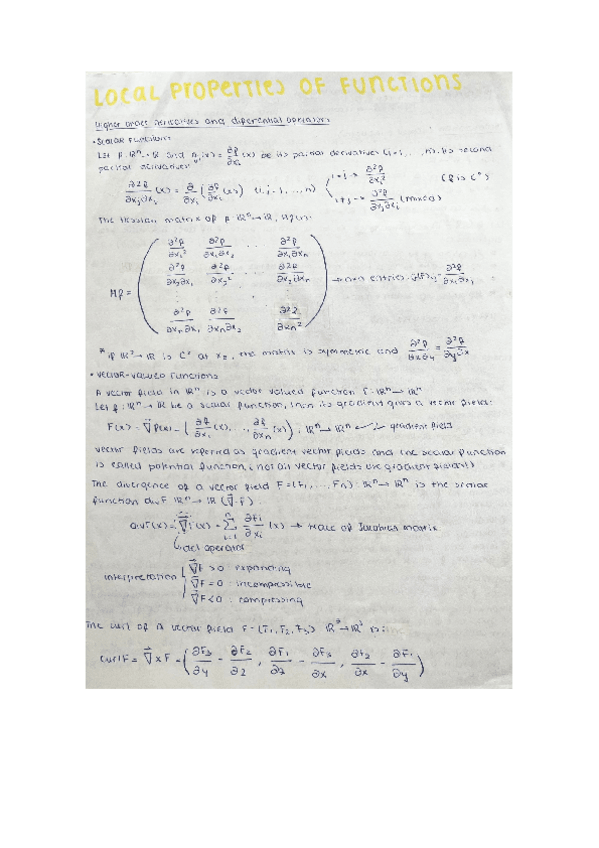 LOCAL PROPERTIES OF FUNCTIONS
Higher order derivatives and diferential operators
• SCALAR FUNCTIONS
Let f: ℝⁿ → ℝ and (x) = ∂f/∂xᵢ (x) be its partial derivatives (i=1, ..., n). Its second
partial derivatives:
∂²f/∂xⱼ∂xᵢ (x) = ∂/∂xⱼ (∂f/∂xᵢ (x)) (i, j = 1, ..., n) i=j → ∂²f/∂xᵢ² i≠j → ∂²f/∂xⱼ∂xᵢ (mixed) (f is C²)
The Hessian matrix of f: ℝⁿ → ℝ, Hf(x):
Hf = ( ∂²f/∂x₁² ∂²f/∂x₁∂x₂ ... ∂²f/∂x₁∂xₙ
∂²f/∂x₂∂x₁ ∂²f/∂x₂² ... ∂²f/∂x₂∂xₙ
∂²f/∂xₙ∂x₁ ∂²f/∂xₙ∂x₂ ∂²f/∂xₙ² ) → entries = ∂²f/∂xᵢ∂xⱼ
* if ℝ² → ℝ is C² at, the matrix is symmetric and ∂²f/∂x∂y = ∂²f/∂y∂x
• VECTOR-VALUED FUNCTIONS
A vector field in ℝⁿ is a vector valued function F: ℝⁿ → ℝⁿ
Let f: ℝⁿ → ℝ be a scalar function, then its gradient gives a vector field:
F(x) = ∇f(x) = (∂f/∂x₁ (x), ..., ∂f/∂xₙ (x)), ℝⁿ → ℝⁿ gradient field
vector fields are reffered as gradient vector fields and the scalar function
is called potential function, (not all vector fields are gradient fields!)
The divergence of a vector field F = (F₁, ..., Fₙ): ℝⁿ → ℝⁿ is the scalar
function div F ℝⁿ → ℝ (∇·F):
div F(x) = ∇F(x) = Σ ∂Fᵢ/∂xᵢ (x) → trace of Jacobian matrix
del operator
interpretation
∇F > 0 : expanding
∇F = 0 : incompressible
∇F < 0 : compressing
The curl of a vector field F = (F₁, F₂, F₃) ℝ³ → ℝ³ is:
curl F = ∇ x F = (∂F₃/∂y - ∂F₂/∂z, ∂F₁/∂z - ∂F₃/∂x, ∂F₂/∂x - ∂F₁/∂y)